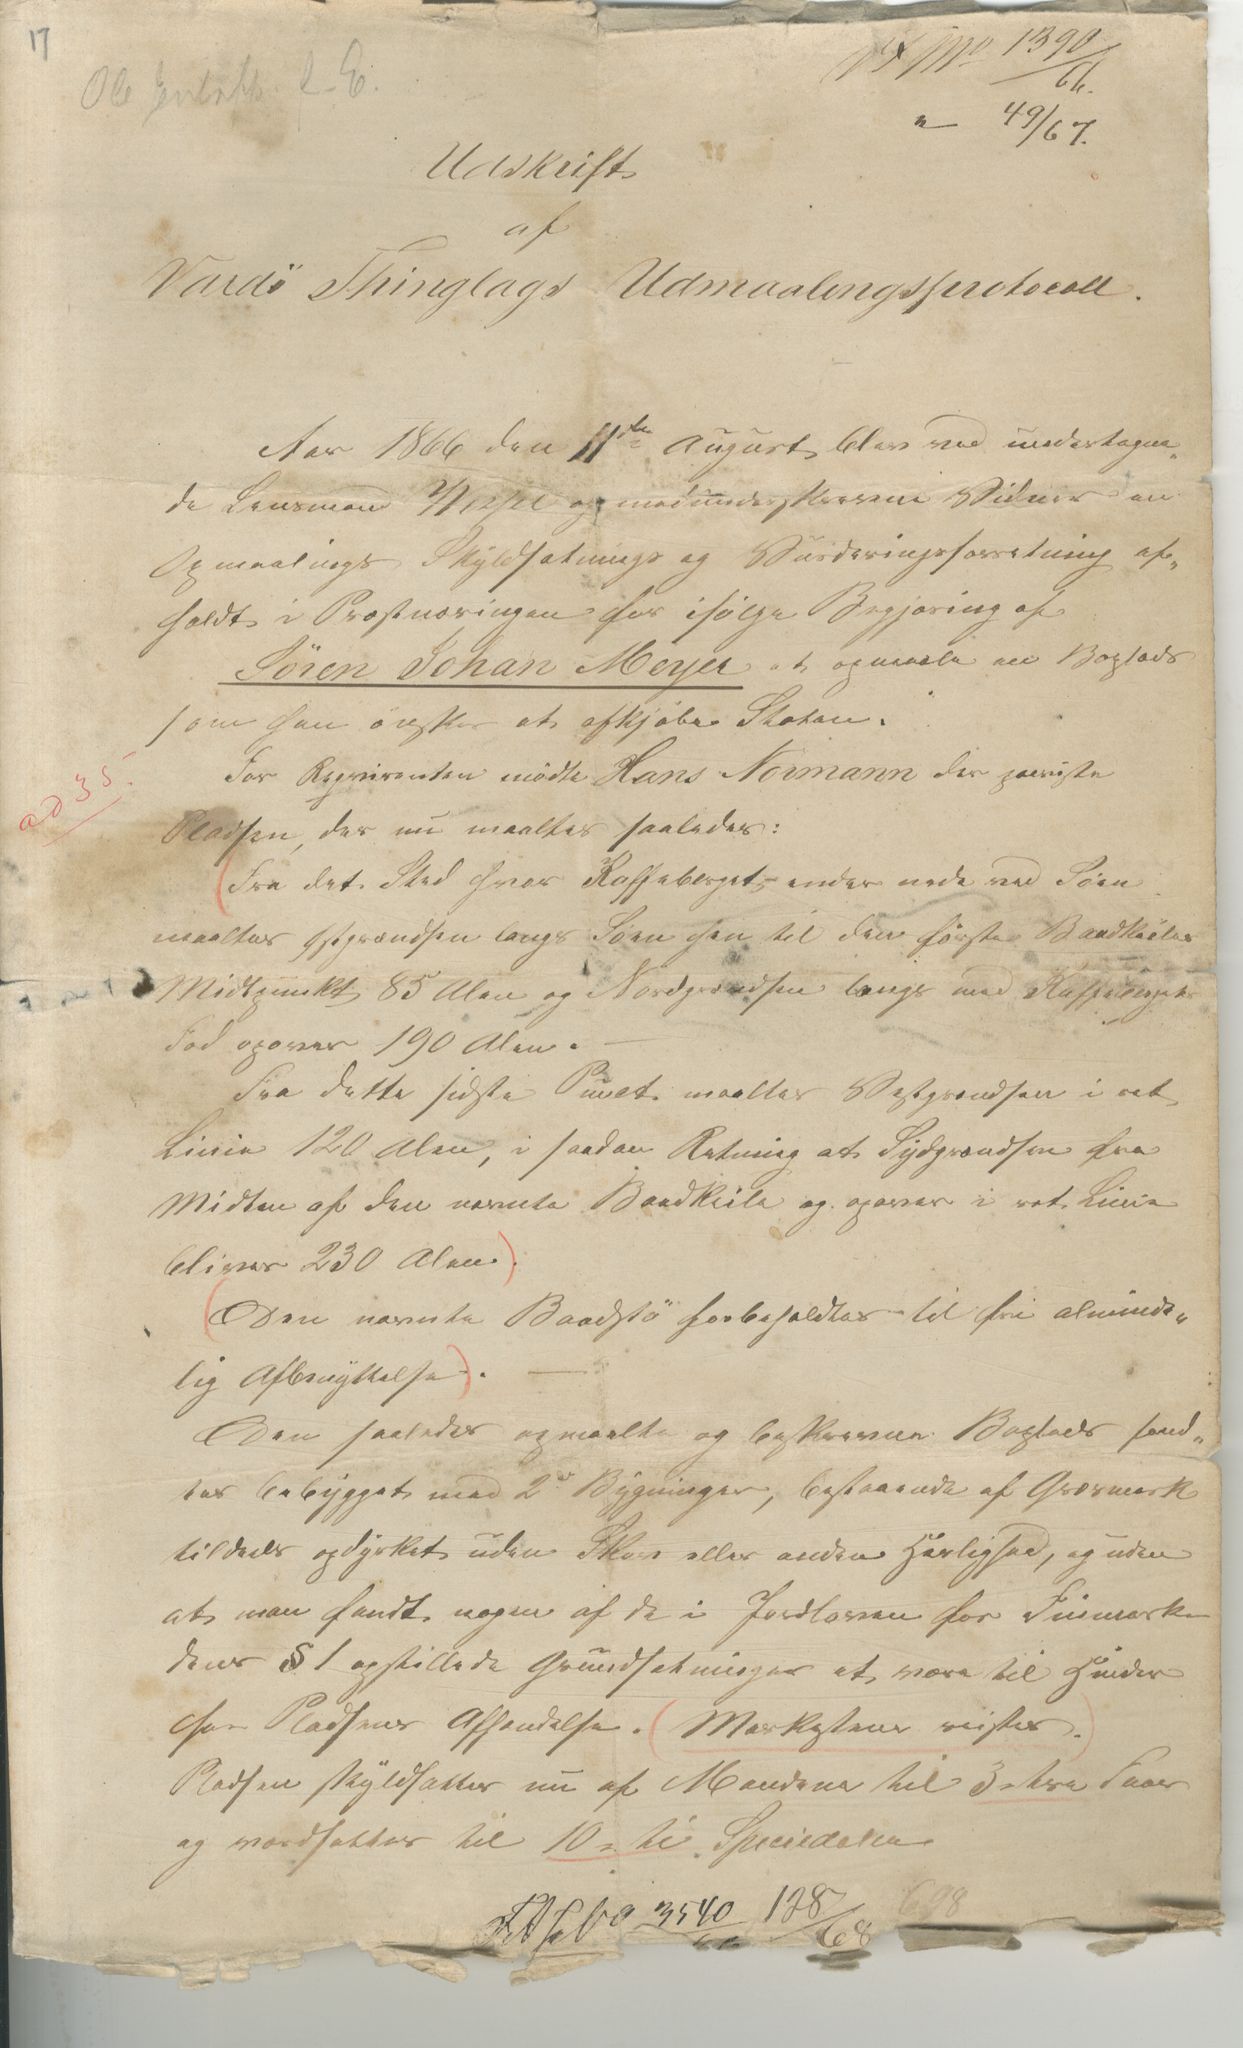 17
Ole
No 1390/66.
" 49/67.
Udskrift
af
Vardö Thinglags Udmaalingsprotocoll.
Aar 1866 den 11te August blev ved undertegne„
de Lensmand Wessel og medunderskrevne Vidner en
Opmaalings Skyldsætnings og Vurderingsforretning af„
holdt i Præstnæringen for ifölge Begjæring af
Sören Johan Meyer at opmaale en Boplads
som han önsker at afkjöbe Staten.
For Reqvirenten mödte Hans Normann der paaviste
ad 35.
Pladsen, der nu maaltes saaledes:
(Fra det Sted hvor Kaffeberget ender nede ved Söen
maaltes Östgrændsen langs Söen hen til den förste Baadkeiles
Midtpunkt 85 Alen og Nordgrændsen langs med Kaffebergets
Fod opover 190 Alen. —
Fra dette sidste Punct maaltes Vestgrændsen i ret
Linie 120 Alen, i saadan Retning at Sydgrændsen fra
Midten af den nævnte Baadkeile og opover i ret Linie
bliver 230 Alen).
(Den nævnte Baadstö forbeholdtes til fri alminde„
lig Afbenyttelse). —
Den saaledes opmaalte og beskrevne Boplads fand„
tes bebygget med 2de Bygninger, bestaaende af Græsmark
tildeels opdyrket uden Skov eller anden Herlighed, og uden
at man fandt nogen af de i Jordloven for Finmarke
dens § 1 opstillede Grundsætninger at være til Hinder
for Pladsens Afhændelse. (Markestene reistes.)
Pladsen skyldsattes nu af Mændene til 3 - tre Faver
og værdsattes til 10 - ti Speciedaler.
3540 128/68 698